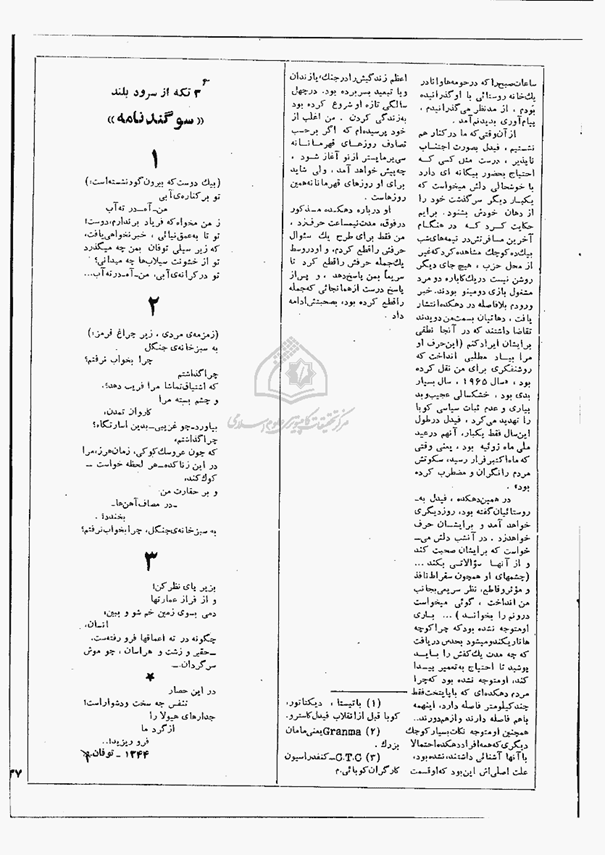 ساعات صبح را که در حومه‌ها و یا در
یک خانه روستائی با او گذرانیده
بودم ، از مدنظر می‌گذرانیدم ،
پیام‌آوری بدیدنم آمد .
از آن وقتی که ما در کنار هم
نشستیم ، فیدل بصورت اجتناب
ناپذیر ، درست مثل کسی که
احتیاج بحضور بیگانه ای دارد
با خوشحالی دلش میخواست که
یکبار دیگر سرگذشت خود را
از دهان خودش بشنود . برایم
حکایت کرد که در هنگام
آخرین مسافرتش در نیمه‌های شب
بیک ده کوچک مشاهده کرد که غیر
از محل حزب ، هیچ جای دیگر
روشن نیست در یک کاباره دو مرد
مشغول بازی دومینو بودند . خبر
ورودم بلافاصله در دهکده انتشار
یافت ، دهاتیان بسمت من دویدند
تقاضا داشتند که در آنجا نطقی
برایشان ایراد کنم (این حرف او
مرا بیاد مطلبی انداخت که
روشنفکری برای من نقل کرده
بود ، «سال ۱۹۶۵ ، سال بسیار
بدی بود ، خشکسالی عجیب و بد
بیاری و عدم ثبات سیاسی کوبا
را تهدید می‌کرد ، فیدل در طول
این سال فقط یکبار ، آنهم در عید
ملی ماه ژوئیه بود ، یعنی وقتی
که ماه اکتبر فرار رسید ، سکوتش
مردم را نگران و مضطرب کرده
بود»
در همین دهکده ، فیدل به-
روستائیان گفته بود ، روز دیگری
خواهد آمد و برایشان حرف
خواهد زد . در آنشب دلش می-
خواست که برایشان صحبت کند
و از آنها سؤالاتی بکند ...
(چشمهای او همچون سقراط نافذ
و مؤثر و قاطع ، نظر سریعی بجانب
من انداخت ، گوئی میخواست
درونم را بخواند) ... باری
او متوجه نشده بود که چرا کوچه
ها تاریکند و میشود بحدس دریافت
که چه مدت یک کفش را باید
پوشید تا احتیاج به تعمیر پیدا
کند ، او متوجه نشده بود که چرا
مردم دهکده‌ای که با پایتخت فقط
چند کیلومتر فاصله دارد ، اینهمه
باهم فاصله دارند و از هم دورند..
همچنین او متوجه نکات بسیار کوچک
دیگری که همه افراد دهکده احتمالا
با آنها آشنائی داشتند ، نشده بود ،
علت اصلی‌اش این بود که او قسمت
اعظم زندگیش را در جنگ ، یا زندان
و یا تبعید بسر برده بود . در چهل
سالگی تازه او شروع کرده بود
به زندگی کردن . من اغلب از
خود پرسیده‌ام که اگر بر حسب
تصادف روزهای قهرمانانه
سی‌یرمایستر از نو آغاز شود ،
چه پیش خواهد آمد ، ولی شاید
برای او روزهای قهرمانانه همین
روزهاست .
او درباره دهکده مذکور
در فوق ، مدت نیمساعت حرف زد ،
من فقط برای طرح یک سئوال
حرفش را قطع کردم ، و او در وسط
یک جمله حرفش را قطع کرد تا
سریعاً بمن پاسخ دهد ، و پس از
پاسخ درست از همانجائی که جمله
را قطع کرده بود ، بصحبتش ادامه
داد .
(۱) باتیستا ، دیکتاتور،
کوبا قبل از انقلاب فیدل کاسترو.
(۲) Granma یعنی مامان
بزرگ .
(۳) C.T.C ـ کنفدراسیون
کارگران کوبائی.م
۳ تکه از سرود بلند
«سوگندنامه»
۱
(بیک دوست که بیرون گود نشسته است:)
تو بر کناره‌ی آبی
من-آمد-در ته آب
ز من مخواه که فریاد برندارم، دوست!
تو تا به عمق نیائی ، خبر نخواهی یافت،
که زیر سیلی توفان بمن چه میگذرد
تو از خشونت سیلاب‌ها چه میدانی؟
تو در کرانه‌ی آبی، من-آمد-در ته آب...
۲
(زمزمه‌ی مردی ، زیر چراغ قرمز:)
به سبزخانه‌ی جنگل
چرا بخواب نرفتم؟
چرا گذاشتم
که اشتیاق تماشا مرا فریب دهد؟،
و چشم بسته مرا
کاروان تمدن،
بیاورد-چو غریبی-بدین اسارتگاه؟
چرا گذاشتم،
که چون عروسک کوکی، زمان هرز، مرا
در این زباکده-هر لحظه خواست-
کوک کند،
و بر حقارت من
-در مصاف آهن‌ها-
بخندد!.
به سبزخانه‌ی جنگل، چرا بخواب نرفتم؟
۳
بزیر پای نظر کن!
و از فراز عمارتها
دمی بسوی زمین خم شو و ببین:
انسان،
چگونه در ته اعماقها فرو رفته‌ست.
-حقیر و زشت و هراسان ، چو موش
سرگردان.-
★
در این حصار
تنفس چه سخت و دشوار است!
جدارهای هیولا را
از گرد ما
فرو ریزید!..
۱۳۴۴ - توفان
۳۷
مرکز تحقیقات کامپیوتری علوم اسلامی